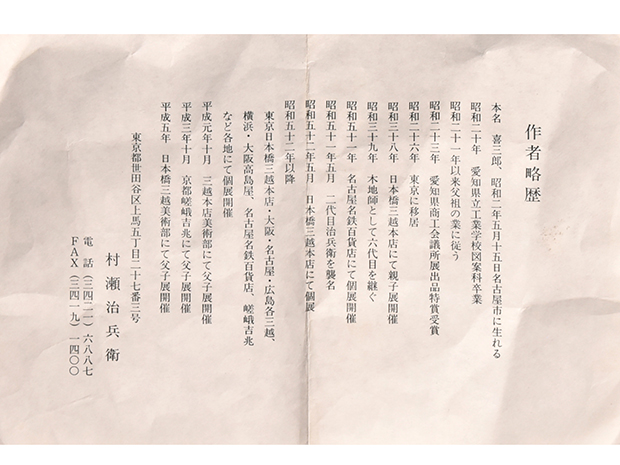 作者略歴
本名　喜三郎、昭和二年五月十五日名古屋市に生れる
昭和二十年　愛知県立工業学校図案科卒業
昭和二十一年以来父祖の業に従う
昭和二十三年　愛知県商工会議所展出品特賞受賞
昭和二十六年　東京に移居
昭和三十八年　日本橋三越本店にて親子展開催
昭和三十九年　木地師として六代目を継ぐ
昭和五十一年　名古屋名鉄百貨店にて個展開催
昭和五十一年五月　二代目治兵衛を襲名
昭和五十二年五月　日本橋三越本店にて個展
昭和五十二年以降
東京日本橋三越本店・大阪・名古屋・広島各三越、
横浜・大阪高島屋、名古屋名鉄百貨店、嵯峨吉兆
など各地にて個展開催
平成元年十月　三越本店美術部にて父子展開催
平成三年十月　京都嵯峨吉兆にて父子展開催
平成五年　日本橋三越美術部にて父子展開催
東京都世田谷区上馬五丁目二十七番三号
村瀬治兵衛
電話（三四二一）六八八七
ＦＡＸ（三四一九）一四〇〇